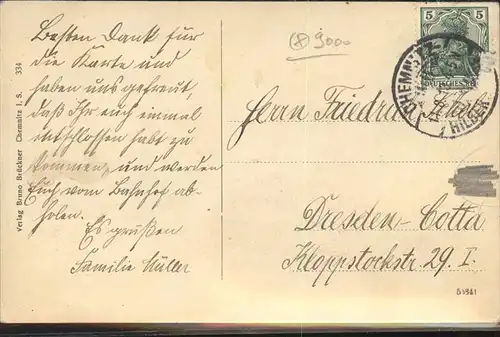 Besten Dank für
die Karte und
haben uns gefreut,
daß Ihr euch einmal
entschlossen habt zu
kommen, und werden
Euch vom Bahnhof ab-
holen.
Es grüßen
Familie Müller
9000
5 5
DEUTSCHES
CHEMNITZ
HILBER
Herrn Friedrich
Dresden-Cotta
Kloppstockstr 29. I.
Verlag Bruno Brückner Chemnitz I. S. 334
55341